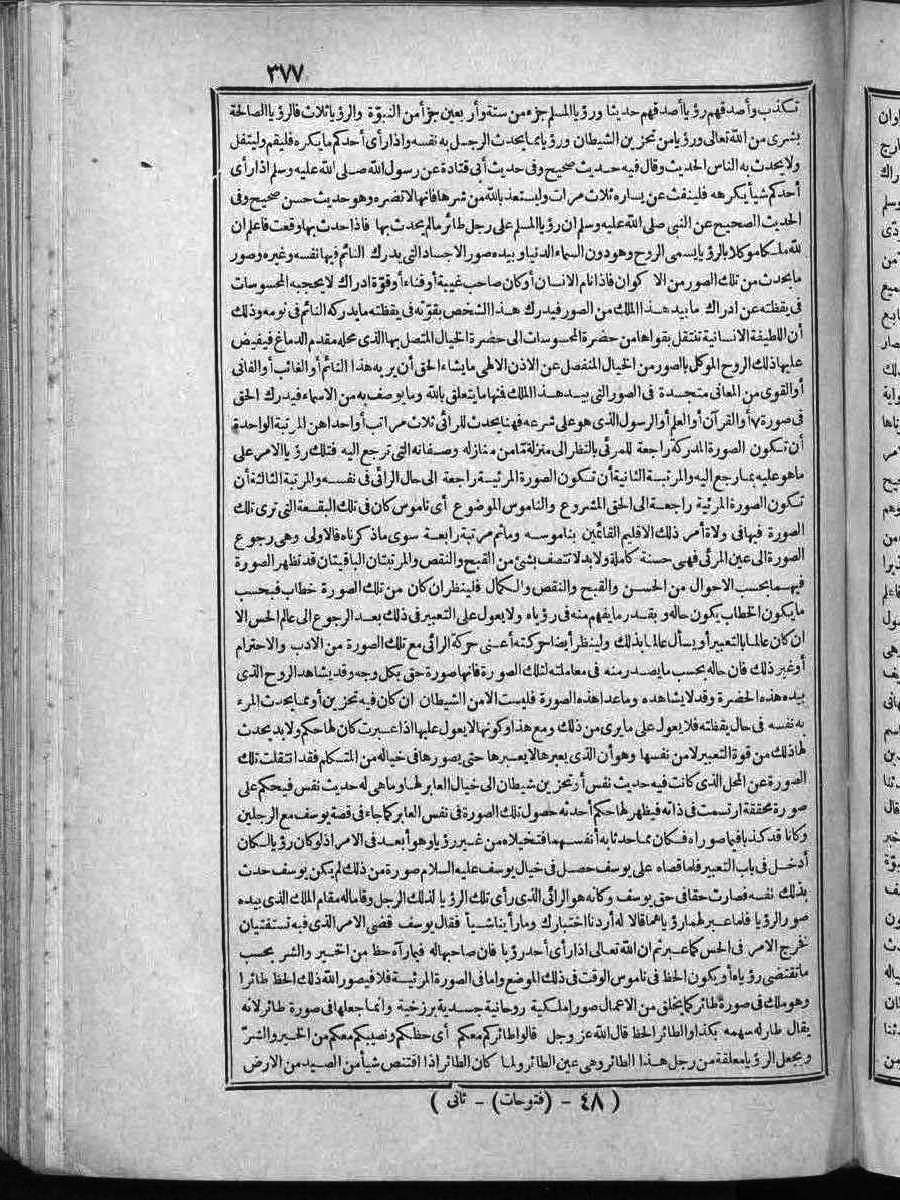 ٣٧٧
تكذب وأصدقهم رؤيا أصدقهم حديثا ورؤيا المسلم جزء من ستة وأربعين جزأ من النبوّة والرؤيا ثلاث فالرؤيا الصالحة
بشرى من الله تعالى ورؤيا من تحزين الشيطان ورؤيا مما يحدث الرجل به نفسه واذا رأى أحدكم ما يكره فليقم وليتفل
ولا يحدث به الناس الحديث وقال فيه حديث صحيح وفى حديث أبى قتادة عن رسول الله صلى الله عليه وسلم اذا رأى
أحدكم شيأ يكرهه فلينفث عن يساره ثلاث مرات وليستعذ بالله من شرها فانها لا تضره وهو حديث حسن صحيح وفى
الحديث الصحيح عن النبى صلى الله عليه وسلم ان رؤيا المسلم على رجل طائر ما لم يحدث بها فاذا حدث بها وقعت فاعلم ان
لله ملكا موكلا بالرؤيا يسمى الروح وهو دون السماء الدنيا وبيده صور الاجساد التى يدرك النائم فيها نفسه وغيره وصور
ما يحدث من تلك الصور من الاكوان فاذا نام الانسان أو كان صاحب غيبة أو فناء أو قوّة ادراك لا يحجبه المحسوسات
فى يقظته عن ادراك ما بيد هذا الملك من الصور فيدرك هذا الشخص بقوّته فى يقظته ما يدركه النائم فى نومه وذلك
أن اللطيفة الانسانية تنتقل بقواها من حضرة المحسوسات الى حضرة الخيال المتصل بها الذى محله مقدم الدماغ فيفيض
عليها ذلك الروح الموكل بالصور من الخيال المنفصل عن الاذن الالهى ما يشاء الحق أن يريه هذا النائم أو الغائب أو الفانى
أو القوى من المعانى متجسدة فى الصور التى بيد هذا الملك فنها ما يتعلق بالله وما يوصف به من الاسماء فيدرك الحق
فى صورة أو القرآن أو العلم أو الرسول الذى هو على شرعه فهنا يحدث للرائى ثلاث مراتب أو احداهن المرتبة الواحدة
أن تكون الصورة المدركة راجعة للمرئى بالنظر الى منزلة ما من منازله وصفاته التى ترجع اليه فتلك رؤيا الامر على
ما هو عليه بما يرجع اليه والمرتبة الثانية أن تكون الصورة المرئية راجعة الى حال الرائى فى نفسه والمرتبة الثالثة أن
تكون الصورة المرئية راجعة الى الحق المشروع والناموس الموضوع أى ناموس كان فى تلك البقعة التى ترى تلك
الصورة فيها فى ولاة أمر ذلك الاقليم القائمين بناموسه وما ثم مرتبة رابعة سوى ما ذكرناه فالاولى وهى رجوع
الصورة الى عين المرئى فهى حسنة كاملة ولا بد لا تتصف بشئ من القبح والنقص والمرتبتان الباقيتان قد تظهر الصورة
فيهما بحسب الاحوال من الحسن والقبح والنقص والكمال فلينظر ان كان من تلك الصورة خطاب فبحسب
ما يكون الخطاب يكون حاله و بقدر ما يفهم منه فى رؤياه ولا يعول على التعبير فى ذلك بعد الرجوع الى عالم الحس الا
ان كان عالما بالتعبير أو يسأل عالما بذلك ولينظر أيضا حركته أعنى حركة الرائى مع تلك الصورة من الادب والاحترام
أو غير ذلك فان حاله بحسب ما يصدر منه فى معاملته لتلك الصورة فانها صورة حق بكل وجه وقد يشاهد الروح الذى
بيده هذه الحضرة وقد لا يشاهده وما عدا هذه الصورة فليست الا من الشيطان ان كان فيه تحزين أو مما يحدث المرء
به نفسه فى حال يقظته فلا يعول على ما يرى من ذلك ومع هذا وكونها لا يعول عليها اذا عبرت كان لها حكم ولا بد يحدث
لها ذلك من قوة التعبير لا من نفسها وهو أن الذى يعبرها لا يعبرها حتى يصورها فى خياله من المتكلم فقد انتقلت تلك
الصورة عن المحل الذى كانت فيه حديث نفس أو تحزين شيطان الى خيال العابر لها وما هى له حديث نفس فيحكم على
صورة محققة ارتسمت فى ذاته فيظهر لها حكم أحدثه حصول تلك الصورة فى نفس العابر كما جاء فى قصة يوسف مع الرجلين
وكانا قد كذبا فيما صوراه فكان مما حدثا به أنفسهما فتخيلاه من غير رؤيا وهو أبعد فى الامر اذ لو كان رؤيا لكان
أدخل فى باب التعبير فلما قصاه على يوسف حصل فى خيال يوسف عليه السلام صورة من ذلك لم يكن يوسف حدث
بذلك نفسه فصارت حقا فى حق يوسف وكأنه هو الرائى الذى رأى تلك الرؤيا لذلك الرجل وقاما له مقام الملك الذى بيده
صور الرؤيا فلما عبر لهما رؤياهما قالا له أردنا اختبارك وما رأينا شيأ فقال يوسف قضى الامر الذى فيه تستفتيان
فخرج الامر فى الحس كما عبر ثم ان الله تعالى اذا رأى أحد رؤيا فان صاحبها له فيما رآه حظ من الخير والشر بحسب
ما تقتضى رؤياه أو يكون الحظ فى ناموس الوقت فى ذلك الموضع واما فى الصورة المرئية فلا فيصور الله ذلك الحظ طائرا
وهو ملك فى صورة طائر كما يخلق من الاعمال صورا ملكية روحانية جسدية برزخية وانما جعلها فى صورة طائر لانه
يقال طار له سهمه بكذا والطائر الحظ قال الله عز وجل قالوا طائركم معكم أى حظكم ونصيبكم معكم من الخير والشرّ
ويجعل الرؤيا معلقة من رجل هذا الطائر وهى عين الطائر ولما كان الطائر اذا اقتنص شيأ من الصيد من الارض
( ٤٨ - (فتوحات) - ثانى )